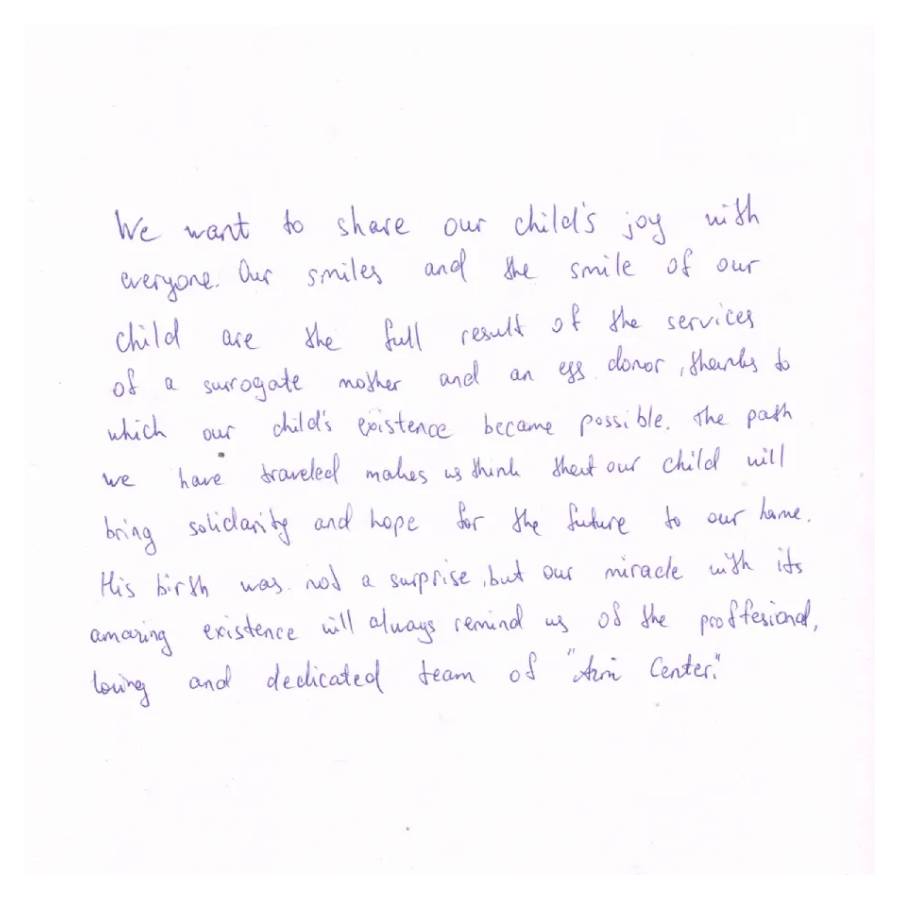 We want to share our child's joy with
everyone. Our smiles and the smile of our
child are the full result of the services
of a surrogate mother and an egg donor, thanks to
which our child's existence became possible. The path
we have traveled makes us think that our child will
bring solidarity and hope for the future to our home.
His birth was not a surprise, but our miracle with its
amazing existence will always remind us of the proffesional,
loving and dedicated team of " Center."